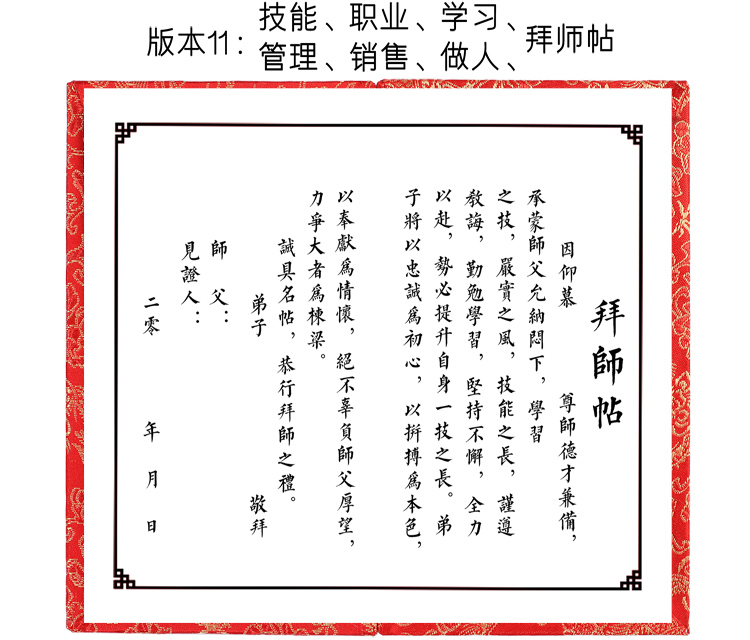 版本11：技能、职业、学习、
管理、销售、做人、拜师帖
拜師帖
因仰慕 尊師德才兼備，
承蒙師父允納閟下，學習
之技，嚴實之風，技能之長，謹遵
教誨，勤勉學習，堅持不懈，全力
以赴，勢必提升自身一技之長。弟
子將以忠誠爲初心，以拼搏爲本色，
以奉獻爲情懷，絕不辜負師父厚望，
力爭大者爲棟梁。
誠具名帖，恭行拜師之禮。
弟子 敬拜
師父：
見證人：
二零 年 月 日